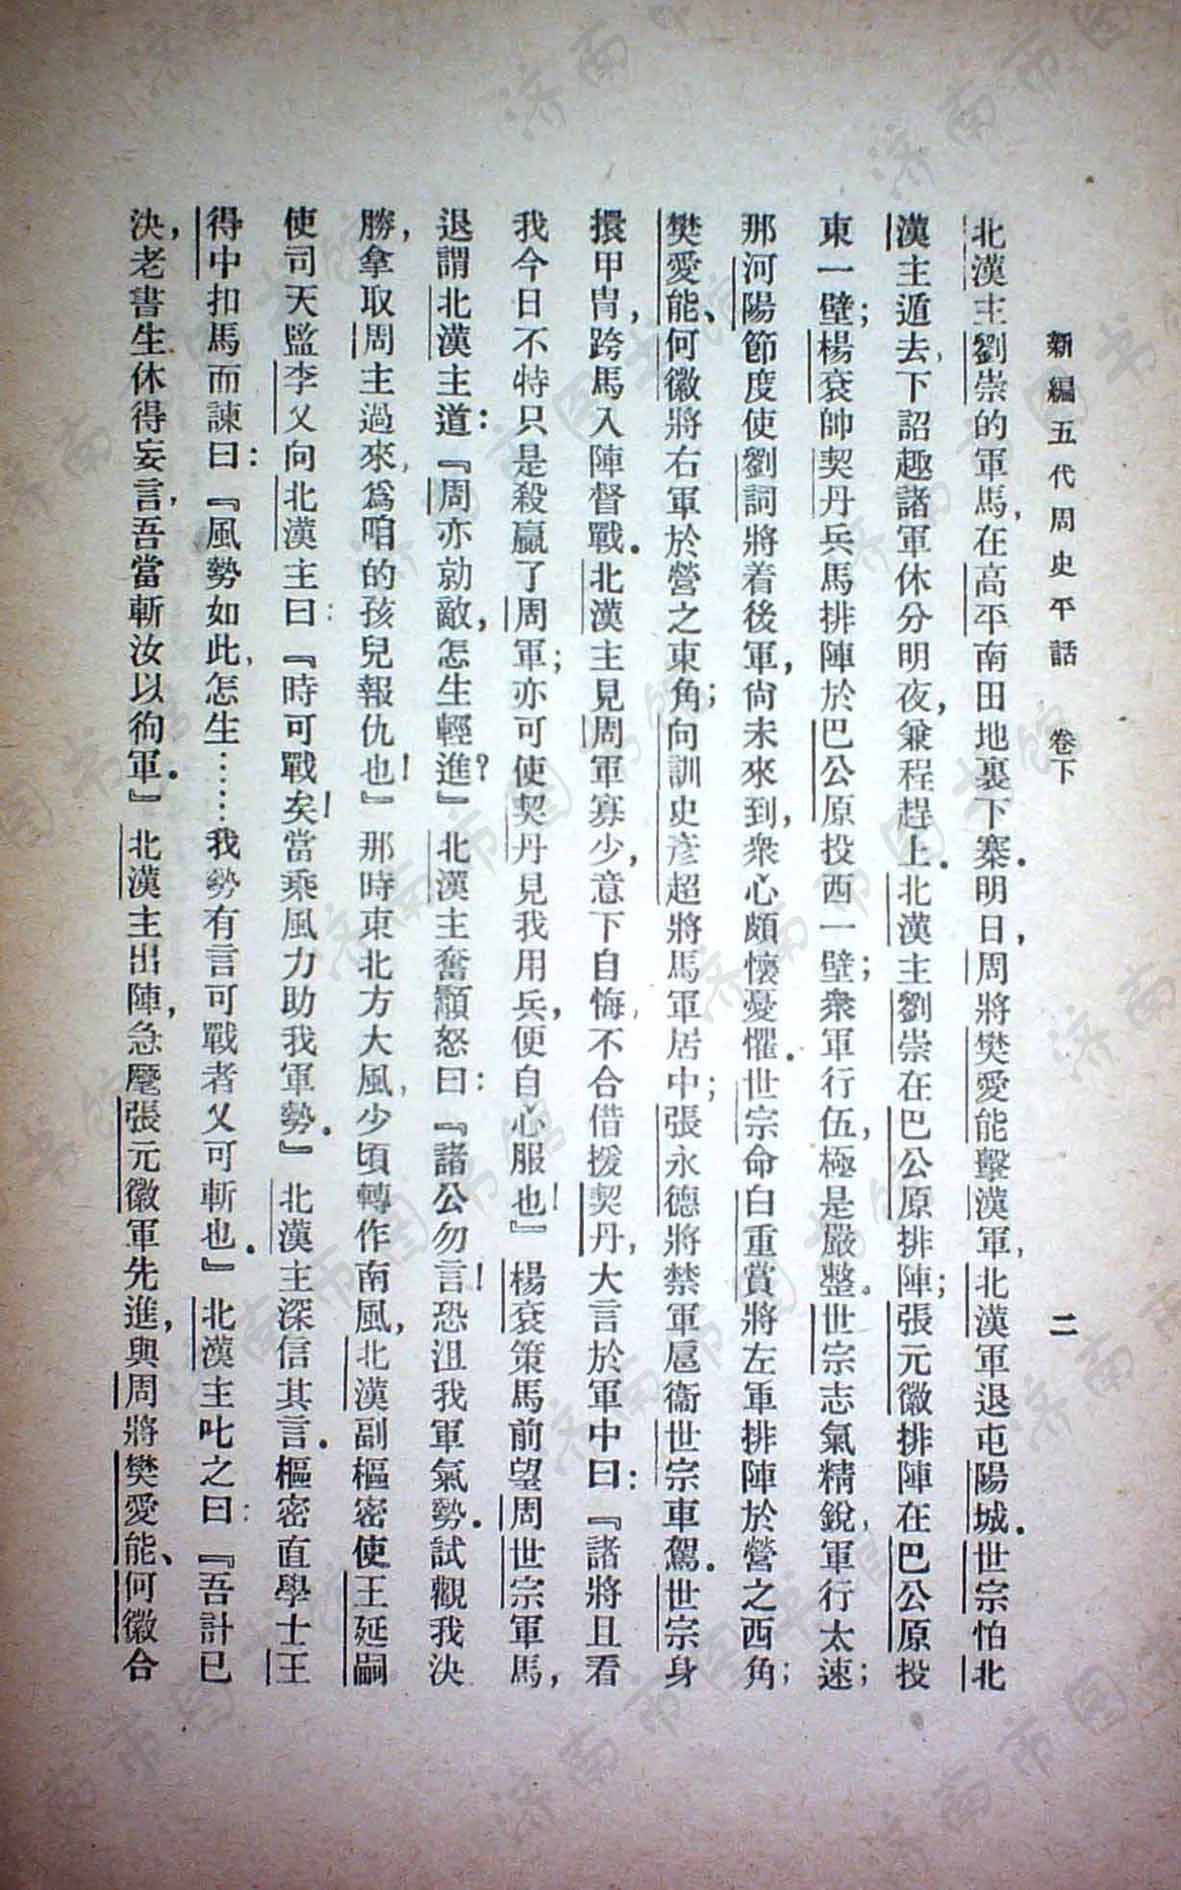 新編五代周史平話　卷下　二
北漢主劉崇的軍馬，在高平南田地裏下寨．明日，周將樊愛能擊漢軍，北漢軍退屯陽城．世宗怕北
漢主遁去，下詔趣諸軍休分明夜，兼程趕上．北漢主劉崇在巴公原排陣；張元徽排陣在巴公原投
東一壁；楊袞帥契丹兵馬排陣於巴公原投西一壁；衆軍行伍，極是嚴整．世宗志氣精銳，軍行太速；
那河陽節度使劉詞將着後軍，尙未來到，衆心頗懷憂懼．世宗命白重賞將左軍排陣於營之西角；
樊愛能、何徽將右軍於營之東角；向訓史彥超將馬軍居中；張永德將禁軍扈衞世宗車駕．世宗身
擐甲冑，跨馬入陣督戰．北漢主見周軍寡少，意下自悔，不合借援契丹，大言於軍中曰：『諸將且看
我今日不特只是殺贏了周軍；亦可使契丹見我用兵，便自心服也！』楊袞策馬前望周世宗軍馬，
退謂北漢主道：『周亦勍敵，怎生輕進？』北漢主奮顬怒曰：『諸公勿言！恐沮我軍氣勢．試觀我決
勝，拿取周主過來，爲咱的孩兒報仇也！』那時東北方大風，少頃轉作南風，北漢副樞密使王延嗣
使司天監李义向北漢主曰：『時可戰矣！當乘風力助我軍勢．』北漢主深信其言．樞密直學士王
得中扣馬而諫曰：『風勢如此，怎生……我勢有言可戰者又可斬也．』北漢主叱之曰：『吾計已
決，老書生休得妄言，吾當斬汝以徇軍．』北漢主出陣，急麾張元徽軍先進，與周將樊愛能、何徽合